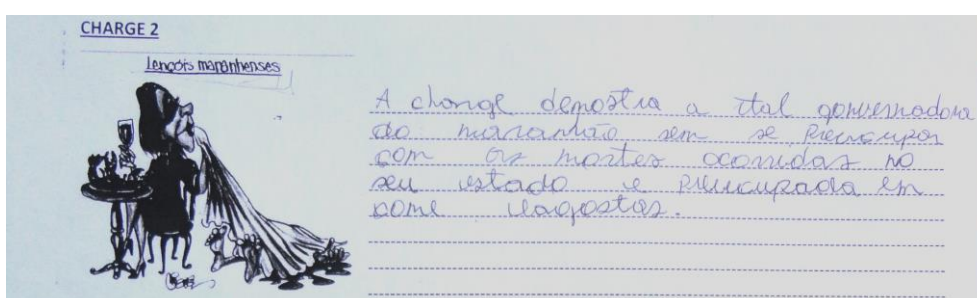 CHARGE 2
Lençóis maranhenses
A charge demostra a tal governadora
do maranhão sem se preucupar
com os mortes ocorridas no
seu estado e preucupada em
come lagostas.